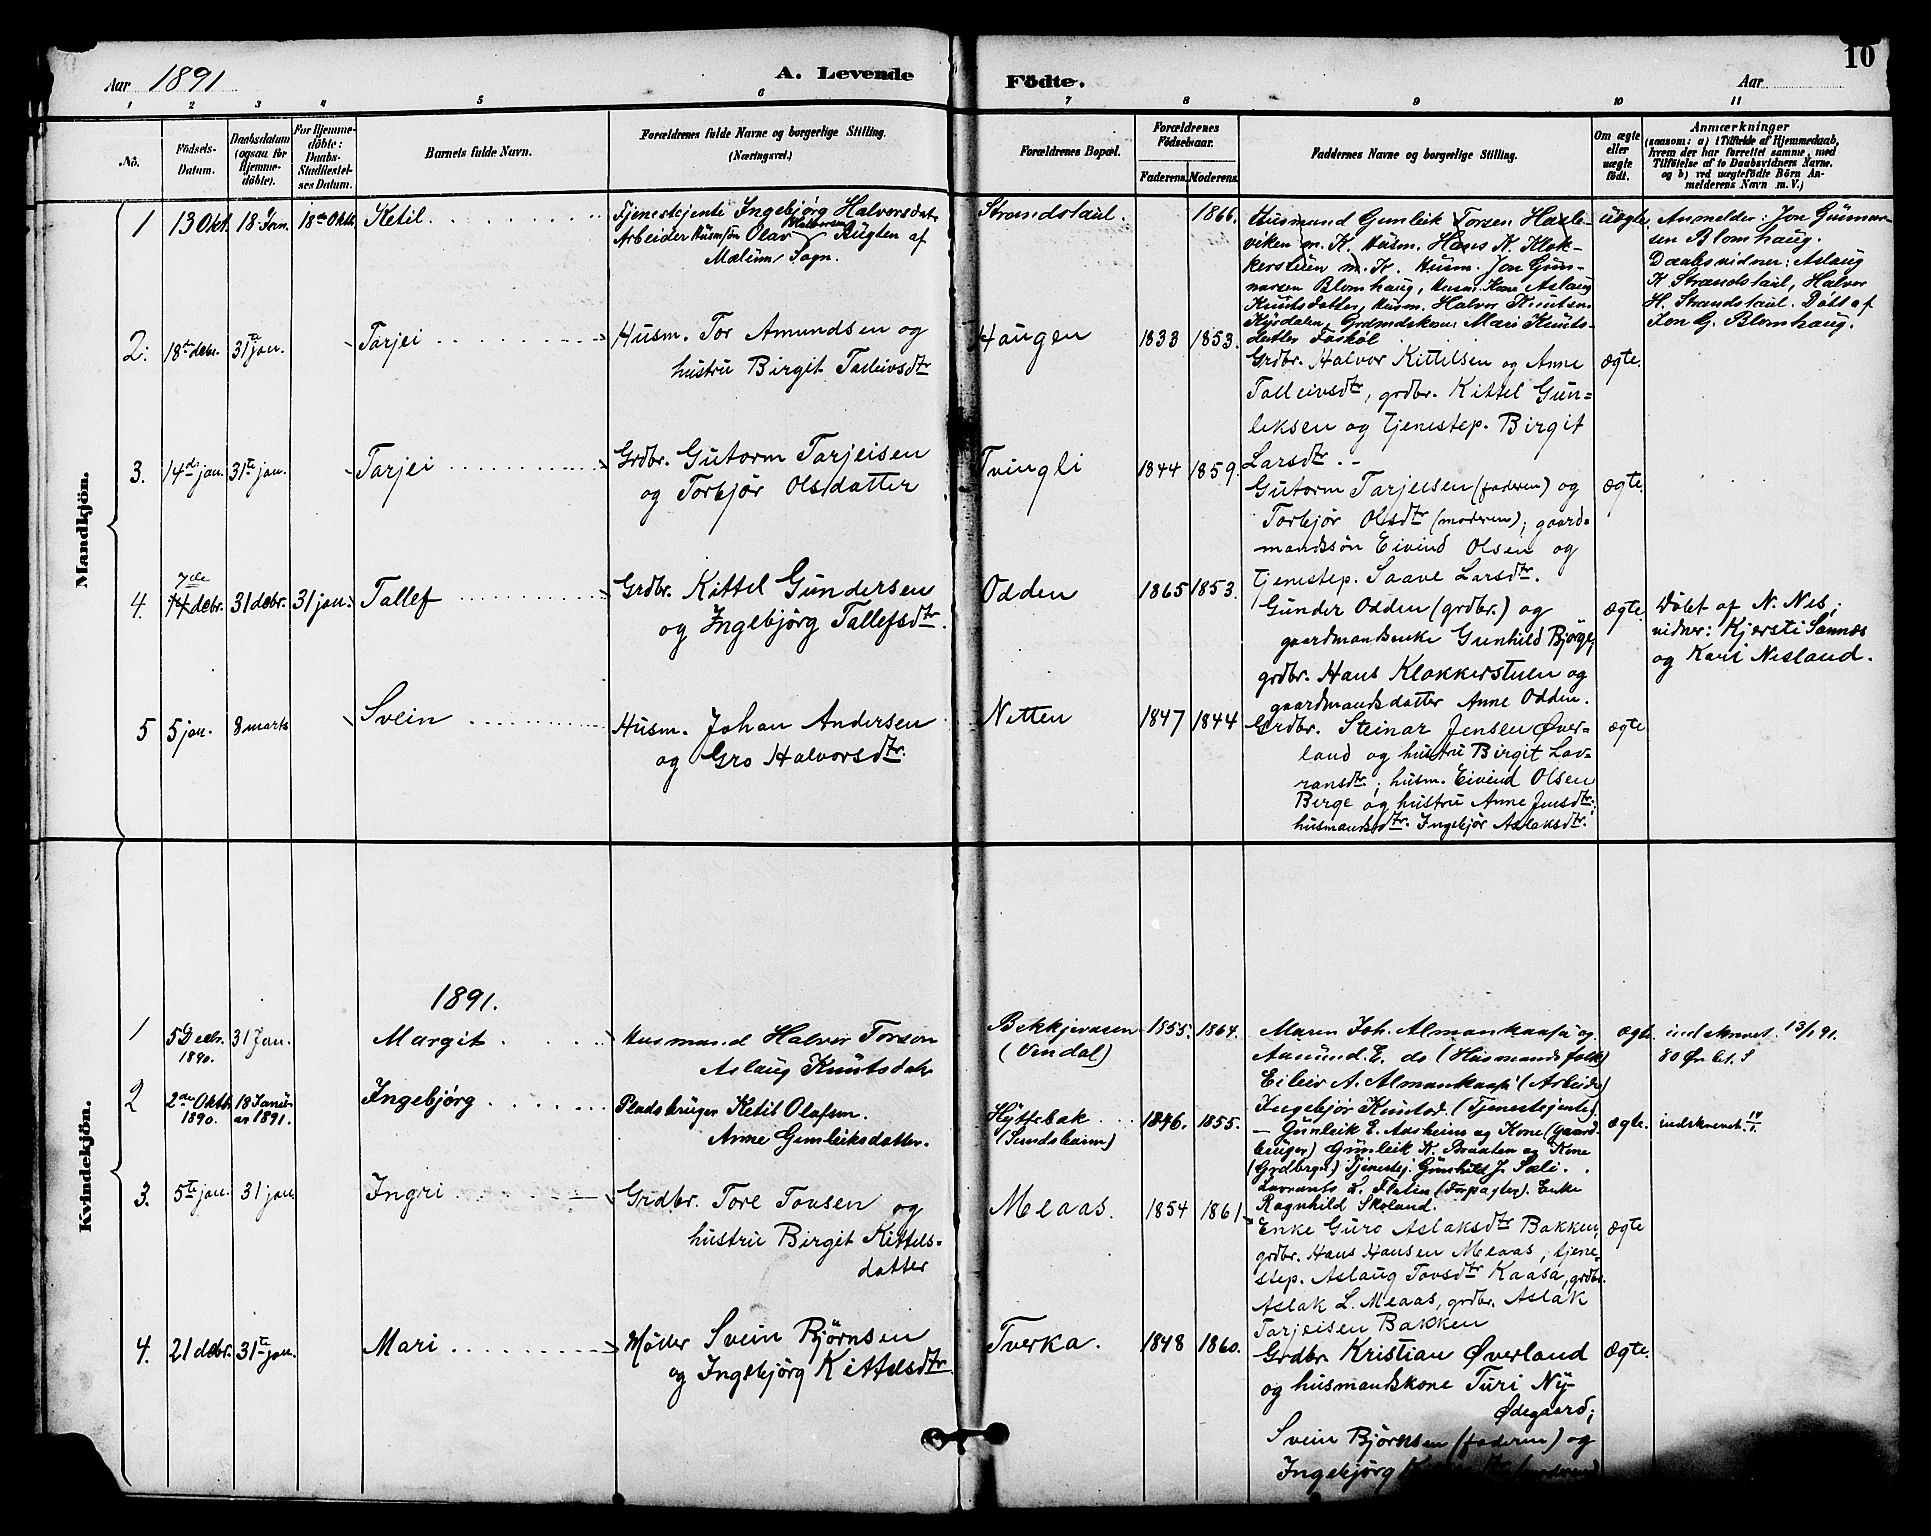 10
Aar 1891
A. Levende Födte.
Aar
1 2 3 4 5 6 7 8 9 10 11
No.
Födsels-Datum.
Daabsdatum (ogsaa for Hjemmedöbte).
For Hjemmedöbte: Daabs-Stadfæstelses Datum.
Barnets fulde Navn.
Forældrenes fulde Navne og borgerlige Stilling. (Næringsvei.)
Forældrenes Bopæl.
Forældrenes Födselsaar.
Faderens. Moderens.
Faddernes Navne og borgerlige Stilling.
Om ægte eller uægte födt.
Anmærkninger
(saasom: a) i Tilfælde af Hjemmedaab,
hvem der har forrettet samme, med
Tilföielse af to Daabsvidners Navne.
og b) ved uægtefödte Börn An-
melderens Navn m. V.)
Mandkjön.
1 13 Okt. 18 Jan. 18de Oktb. Ketil.
Tjenestejente Ingebjørg Halvorsdat.
Arbeider Husmsøn Olav Halvorsen Rugten af
Sogn.
Strandstaul. 1866.
Husmand Gunleik Torsen
viken m. K. Husm. Hans K. Klok-
kersteien m. K. Husm. Jon Gun-
narsen Blomhaug, Husm. Kone Aslaug
Knutsdatter, Husm. Halvor Knutsen
Grdmdskone Mari Knuts-
datter
uægte.
Anmelder: Jon Gunnar-
sen Blomhaug.
Daabsvidner: Aslaug
K Strandstaul, Halvor
H. Strandstaul. Døbt af
Jon G. Blomhaug.
2. 18de debr. 31te jan. Tarjei
Husm. Tor Amundsen og
hustru Birgit Talleivsdtr
Haugen 1833 1853.
Grdbr. Halvor Kittilsen og Anne
Talleivsdtr, grdbr. Kittel Gun-
leksen og Tjenestep. Birgit
Larsdtr. -
ægte.
3. 14de jan. 31te jan. Tarjei
Grdbr. Gutorm Tarjeisen
og Torbjør Olsdatter
Tvingli 1844 1859.
Gutorm Tarjeisen (faderen) og
Torbjør Olsdtr (moderen); gaard-
mandssøn Eivind Olsen og
Tjenestep. Saave Larsdtr.
ægte.
4. 7de 14 debr. 31 debr. 31 jan. Tallef
Grdbr. Kittel Gundersen
og Ingebjørg Tallefsdtr.
Odden 1865 1853.
Gunder Odden (grdbr.) og
gaardmandsenke Gunhild Bjørge,
grdbr. Hans Klokkerstuen og
gaardmandsdatter Anne Odden.
ægte.
Døbt af N. Nes;
vidner: Kjersti Sannes
og Kari Nesland.
5 5 jan. 8 marts Svein
Husm. Johan Andersen
og Gro Halvorsdtr.
Netten 1847 1844
Grdbr. Steinar Jensen Øver-
land og hustru Birgit Lav-
ransdtr; husm. Eivind Olsen
Berge og hustru Anne Jensdtr;
husmandsdtr. Ingebjør Aslaksdtr.
ægte
Kvindekjön.
1891.
1 5 Decbr. 1890. 31 Jan. Margit
Husmand Halvor Torson
Aslaug Knutsdatr
Bekkjevasen (Vindal) 1855. 1864.
Maren Joh. Almankaasa og
Aamund E. do (Husmandsfolk)
Eileiv A. Almankaasa (Arbeider)
Ingebjør Knutsd. (Tjenestejente)
ægte. indskrevet 13/1 91.
80 Øre bt. S
2 2den Oktb. 1890. 18 Januar 1891. Ingebjørg
Pladsbruger Ketil Olafsen.
Anne Gunleiksdatter.
Hyttebak (Sundsbarm) 1846. 1855.
- Gunleik E. Aasheim og Kone (Gaard-
bruger) Gunleik K. Braaten og Kone
(Grdbrgr) Tjenestej. Gunhild J. Sæli.
Lavrants L. Flatin (Forpagter). Enke
Ragnhild Skoland.
ægte. indskrevet
3. 5te jan. 31 jan. Ingri
Grdbr. Tore Tovsen og
hustru Birgit Kittels-
datter
Melaas. 1854 1861
Enke Guro Aslaksdtr Bakken,
grdbr. Hans Hansen Melaas, tjene-
step. Aslaug Tovsdtr Kaasa, grdbr.
Aslak L. Melaas, grdbr. Aslak
Tarjeisen Bakken
ægte
4. 21 debr. 31te jan. Mari
Møller Svein Bjørnsen
og Ingebjørg Kittelsdtr
Tverka. 1848 1860.
Grdbr. Kristian Øverland
og husmandskone Turi Ny-
Ødegaard;
Svein Bjørnsen (faderen) og
Ingebjørg
ægte.